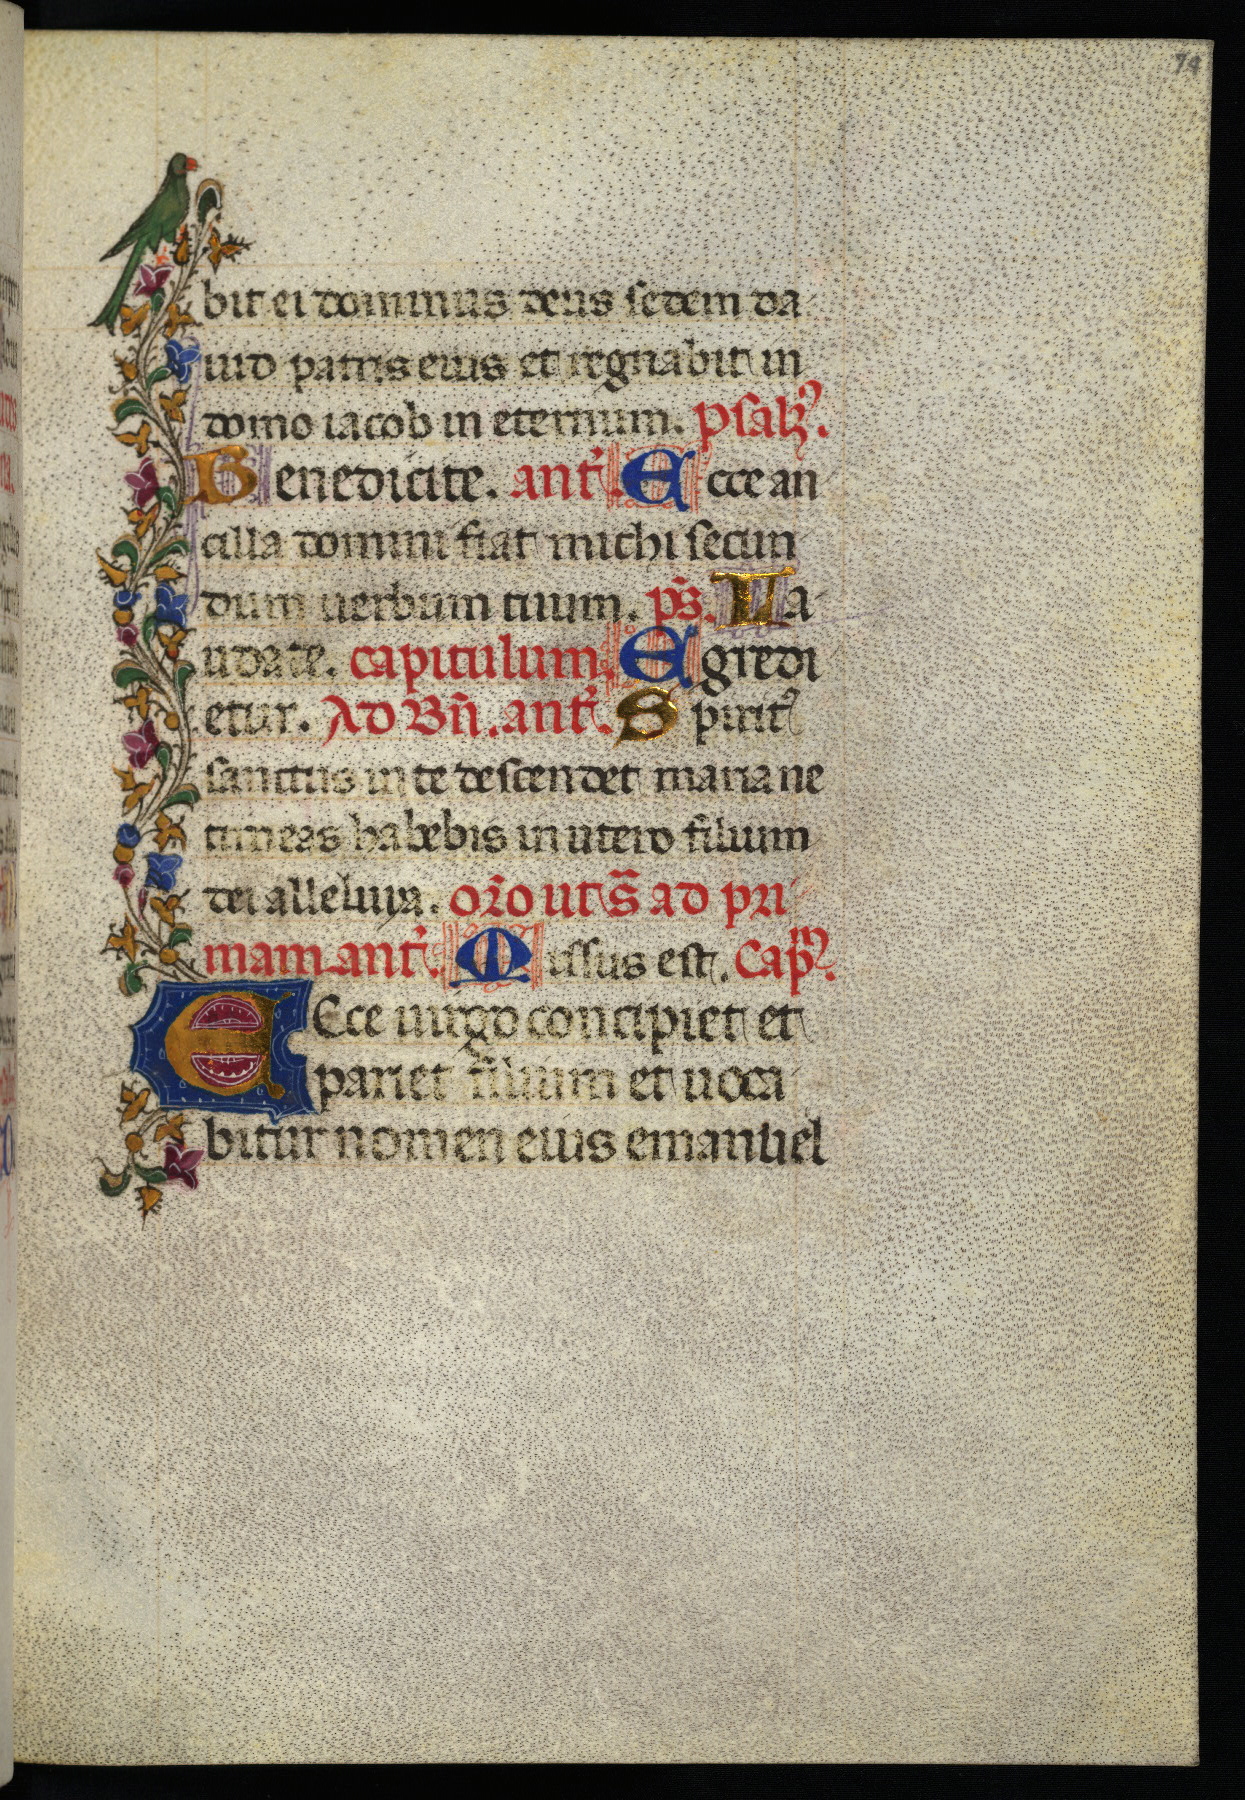 74
bit ei dominus deus sedem da
uid patris eius et regnabit in
domo iacob in eternum. psalꝫ᾿.
Benedicite. ant̃. Ecce an
cilla domini fiat michi secun
dum uerbum tuum. ps̃. La
udate. capitulum. Egredi
etur. Ad Bñ. ant̃. Spiritꝰ
sanctus in te descendet maria ne
timeas habebis in utero filium
dei alleluya. or̃o ut s̃ ad pri
mam ant̃. Missus est. Cap̃m.
ECce uirgo concipiet et
pariet filium et uoca
bitur nomen eius emanuel